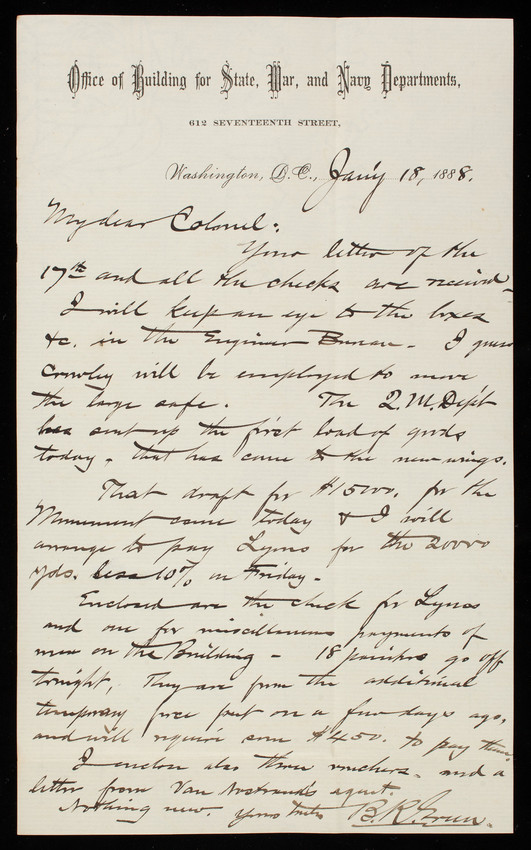 Office of Building for State, War, and Navy Departments,
612 SEVENTEENTH STREET,
Washington, D.C., Jan'y 18, 1888.
My dear Colonel:
Your letter of the
17th and all the checks are received.
I will keep an eye to the boxes
&c. in the Engineer Bureau. I guess
Crowley will be employed to move
the large safe. The Q.M. Dep't
has sent up the first load of goods
today, that has come to the new wings.
That draft for $15000. for the
Monument came today & I will
arrange to pay Lyons for the 20000
yds. less 10% on Friday.
Enclosed are the check for Lyons
and one for miscellaneous payments of
men on the Building - 18 go off
tonight, They are from the additional
temporary force put on a few days ago,
and will require some $450. to pay them.
I enclose also three vouchers. and a
letter from Van Nostrand's agent.
Nothing new. Yours truly B.R. Green.